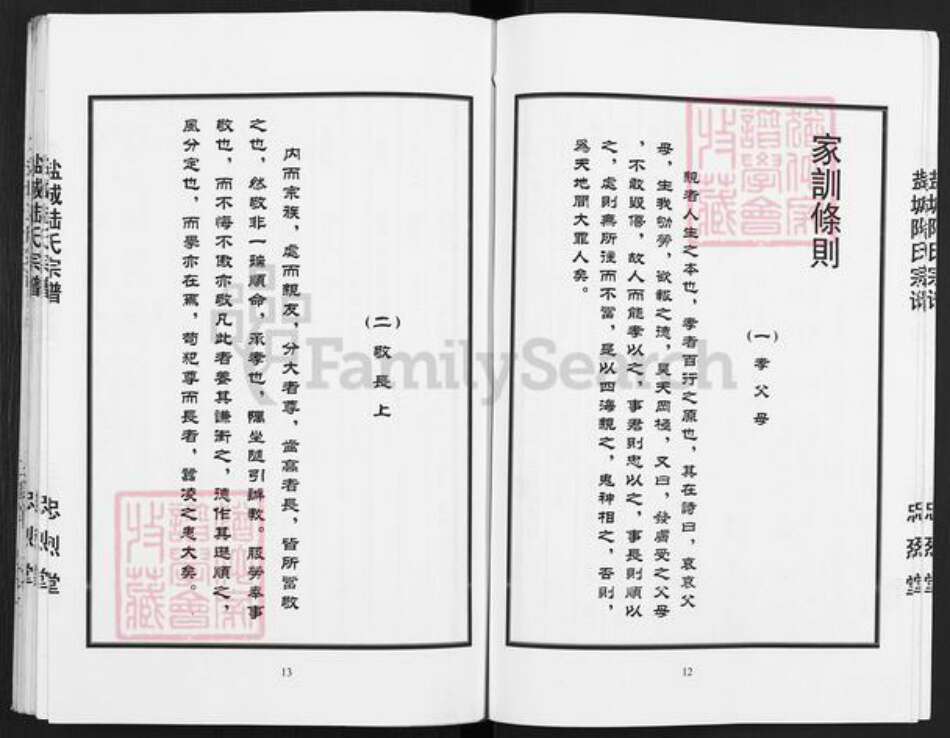 家訓條則
(一)孝父母
親者人生之本也，孝者百行之原也，其在詩曰，哀哀父
母，生我劬勞，欲報之德，昊天罔極，又曰，發膚受之父母
，不敢毀傷，故人而能孝以之，事君則忠以之，事長則順以
之，處則無所往而不當，是以四海親之，鬼神相之，否則，
爲天地間大罪人矣。
12
(二)敬長上
內而宗族，處而親友，分大者尊，齒高者長，皆所當敬
之也，然敬非一端順命，承孝也，隅坐隨引辭教。服勞奉事
敬也，而不悔不傲亦敬凡此者養其謙衝之，德作其遜順之，
風分定也，而學亦在焉，苟犯尊而長者，凌之患大矣。
13
盐城陆氏宗谱
忠烈堂
FamilySearch